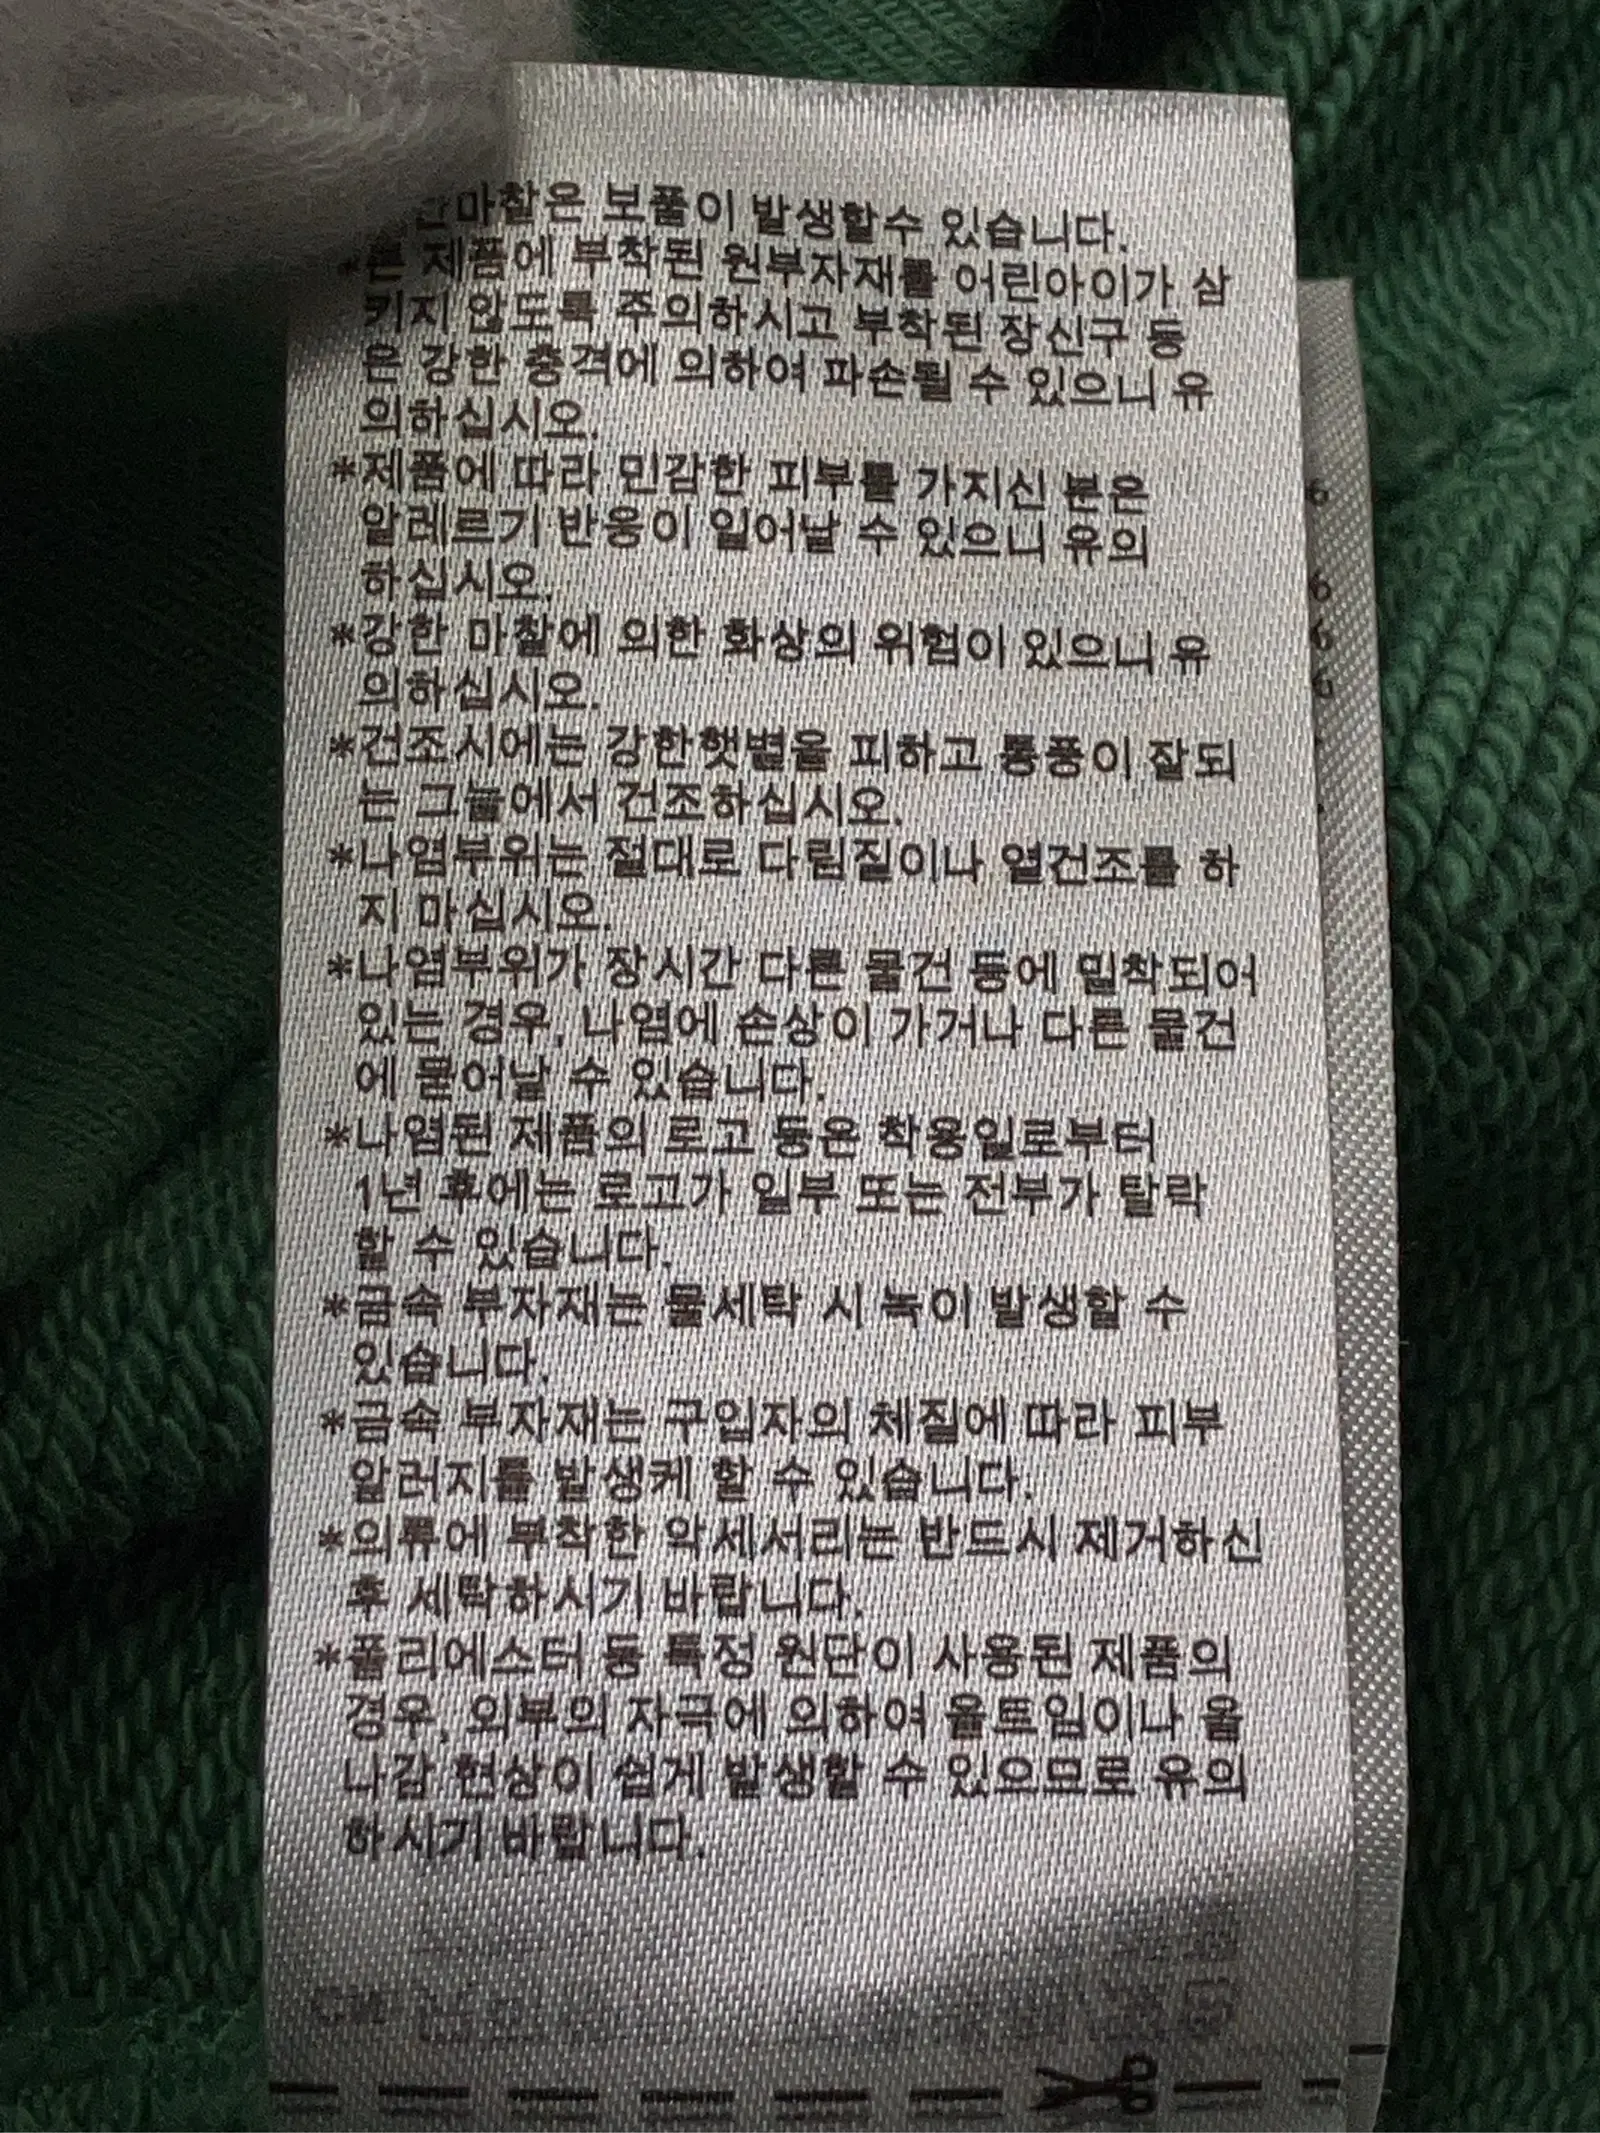 마찰은 보풀이 발생할수 있습니다.
*본 제품에 부착된 원부자재를 어린아이가 삼
키지 않도록 주의하시고 부착된 장신구 등
은 강한 충격에 의하여 파손될 수 있으니 유
의하십시오.
*제품에 따라 민감한 피부를 가지신 분은
알레르기 반응이 일어날 수 있으니 유의
하십시오.
*강한 마찰에 의한 화상의 위험이 있으니 유
의하십시오.
*건조시에는 강한햇볕을 피하고 통풍이 잘되
는 그늘에서 건조하십시오.
*나염부위는 절대로 다림질이나 열건조를 하
지 마십시오.
*나염부위가 장시간 다른 물건 등에 밀착되어
있는 경우, 나염에 손상이 가거나 다른 물건
에 묻어날 수 있습니다.
*나염된 제품의 로고 등은 착용일로부터
1년 후에는 로고가 일부 또는 전부가 탈락
할 수 있습니다.
*금속 부자재는 물세탁 시 녹이 발생할 수
있습니다.
*금속 부자재는 구입자의 체질에 따라 피부
알러지를 발생케 할 수 있습니다.
*의류에 부착한 악세서리는 반드시 제거하신
후 세탁하시기 바랍니다.
*폴리에스터 등 특정 원단이 사용된 제품의
경우, 외부의 자극에 의하여 올트임이나 올
나감 현상이 쉽게 발생할 수 있으므로 유의
하시기 바랍니다.
6
6
6
6